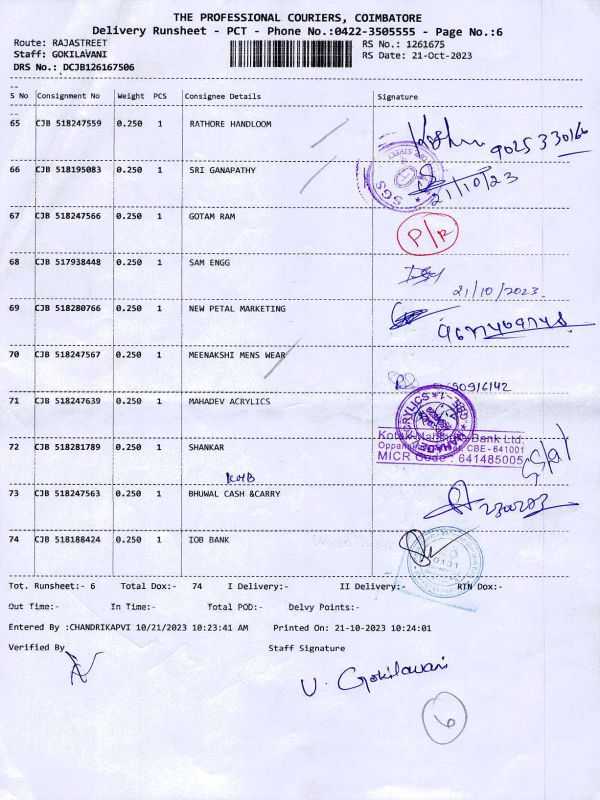 THE PROFESSIONAL COURIERS, COIMBATORE
Delivery Runsheet - PCT - Phone No.:0422-3505555 - Page No.:6
Route: RAJASTREET RS No.: 1261675
Staff: GOKILAVANI RS Date: 21-Oct-2023
DRS No.: DCJB126167506
S No Consignment No Weight PCS Consignee Details Signature
65 CJB 518247559 0.250 1 RATHORE HANDLOOM
9025330166
66 CJB 518195083 0.250 1 SRI GANAPATHY
SGS
21/10/23
67 CJB 518247566 0.250 1 GOTAM RAM
P/R
68 CJB 517938448 0.250 1 SAM ENGG
21/10/2023.
69 CJB 518280766 0.250 1 NEW PETAL MARKETING
70 CJB 518247567 0.250 1 MEENAKSHI MENS WEAR
90916142
71 CJB 518247639 0.250 1 MAHADEV ACRYLICS
MAHADEV ACRYLICS * CBE-1 *
Kotak Mahindra Bank Ltd.
72 CJB 518281789 0.250 1 SHANKAR
CBE - 641001
MICR Code : 641485005
KMB
73 CJB 518247563 0.250 1 BHUWAL CASH &CARRY
74 CJB 518188424 0.250 1 IOB BANK
0131
Tot. Runsheet:- 6 Total Dox:- 74 I Delivery:- II Delivery:- RTN Dox:-
Out Time:- In Time:- Total POD:- Delvy Points:-
Entered By :CHANDRIKAPVI 10/21/2023 10:23:41 AM Printed On: 21-10-2023 10:24:01
Verified By Staff Signature
V. Gokilavani
6